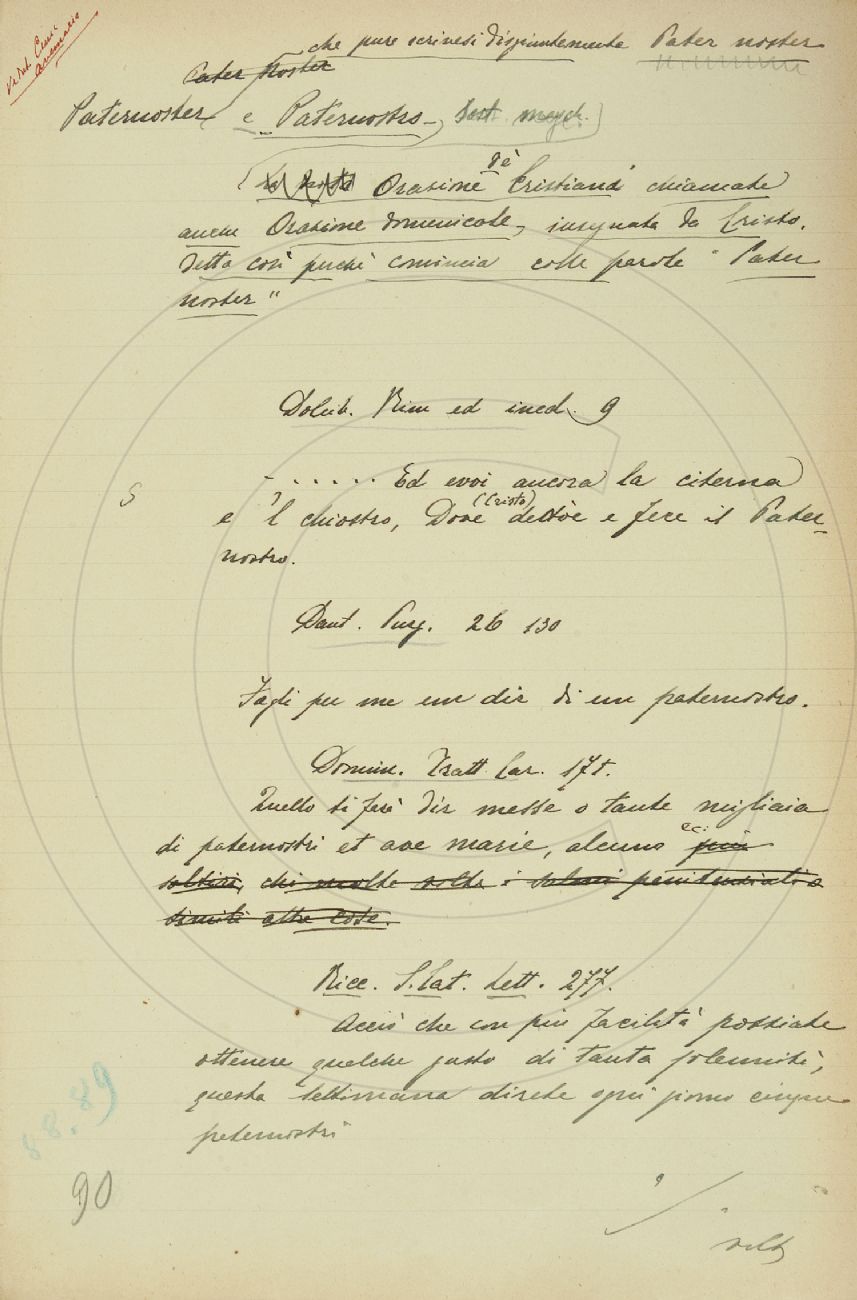 che pure scrivesi disgiuntamente Pater noster
Pater Noster
Paternoster e Paternostro Sost. masch.
Orazione de' Cristiani chiamata
anche Orazione domenicale, insegnata da Cristo.
Detta così perchè comincia colle parole "Pater
noster"
Dolcib. Rim ed ined. 9
5
- . . . . . Ed evvi ancora la citerna
e 'l chiostro, Dove (Cristo) dettò e fece il Pater-
nostro.
Dant. Purg. 26 130
Fagli per me un dir di un paternostro.
Domin. Tratt. Car. 171.
Quello ti farà dir messe o tante migliaia
di paternostri et ave marie, alcuno ec.
salmi penitenziali o
simili altre cose.
Ricc. S. Cat. Lett. 277.
Acciò che con più facilità possiate
ottenere qualche gusto di tanta solennità,
questa settimana direte ogni giorno cinque
paternostri
88.89
90
volt